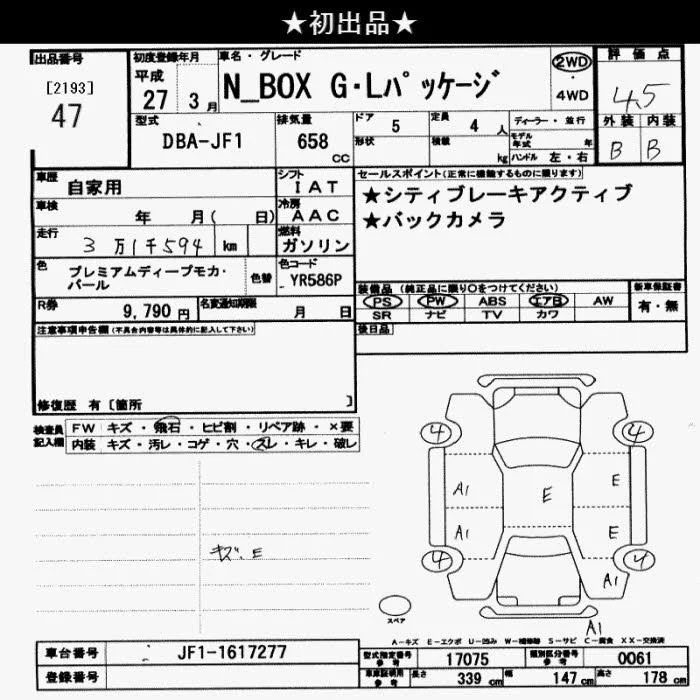 ★初出品★
出品番号
[2193]
47
初度登録年月
平成
27 3月
車名・グレード
N_BOX G・Lパッケージ
2WD
4WD
評価点
4.5
外装 内装
B B
型式
DBA-JF1
排気量
658 cc
ドア 5
定員 4 人
形状
積載 kg
ディーラー・並行
モデル年式 年
ハンドル 左・右
車歴
自家用
シフト
IAT
車検
年 月( 日)
冷房
AAC
走行
3万1千594 km
燃料
ガソリン
セールスポイント(正常に機能するものに限ります)
★シティブレーキアクティブ
★バックカメラ
色
プレミアムディープモカ・パール
色替
色コード
YR586P
装備品 (純正品に限り○をつけてください)
PS PW ABS エアB AW
SR ナビ TV カワ
新車保証書
有・無
R券
9,790 円
名変通知期限
月 日
後日品
注意事項申告欄(不具合内容等は具体的に記入して下さい)
修復歴 有 [箇所 ]
検査員記入欄
FW キズ・飛石・ヒビ割・リペア跡・×要
内装 キズ・汚レ・コゲ・穴・スレ・キレ・破レ
キズ、E
4 4
A1 E E
A1 E
4 4
A1
スペア
A1
A-キズ E-エクボ U-凹み W-補修跡 S-サビ C-腐食 XX-交換済
車台番号
JF1-1617277
登録番号
型式指定番号
参考
17075
類別区分番号
参考
0061
車庫証明用
参考
長さ 339 cm
幅 147 cm
高さ 178 cm